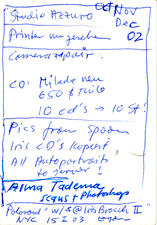 Studio Azzuro
Oct Nov
Dec
02
Printer umgeschen
Camera repair:
CD: Milada neu
650 & Titel
10 cd's → 10 St!
Pics from Spoon
Iris CD's kopiert
All Autoportraits
to server!
Alma Tadema
scans + Photoshop
Polaroid "w/s @ Iris Brosch II"
NYC 15 2 03